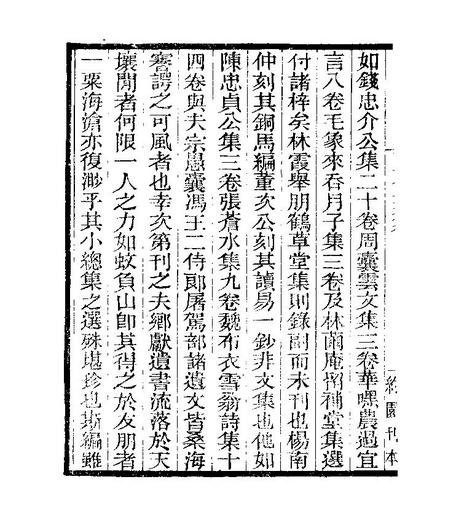 如錢忠介公集二十卷周囊雲文集三卷華嘿農過宜
言八卷毛象來吞月子集三卷及林繭庵留補堂集選
付諸梓矣林霞舉朋鶴草堂集則錄副而未刊也楊南
仲刻其銅馬編董次公刻其讀易一鈔非文集也他如
陳忠貞公集三卷張蒼水集九卷魏布衣雪翁詩集十
四卷與夫宗愚囊馮王二侍郎屠駕部諸遺文皆桑海
謇諤之可風者也幸次第刊之夫鄉獻遺書流落於天
壤閒者何限一人之力如蚊負山卽其得之於友朋者
一粟海滄亦復渺乎其小總集之選殊堪珍也斯編雖
約園刊本